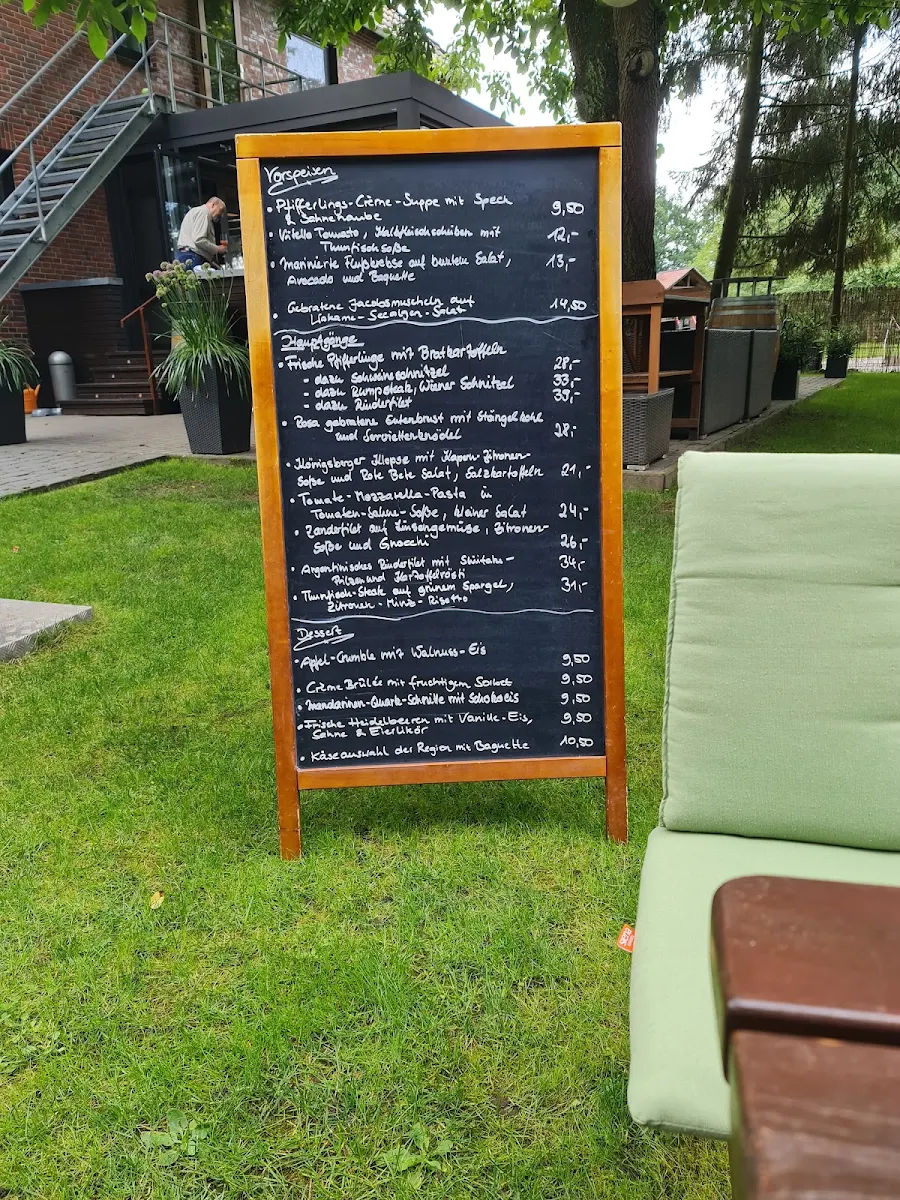 Vorspeisen
• Pfifferlings-Crème-Suppe mit Speck 9,50
& Sahnehaube
• Vitello Tomasto, Kalbfleischscheiben mit 12,-
Thunfischsoße
• marinierte Flußkrebse auf buntem Salat, 13,-
Avocado und Baguette
• Gebratene Jacobsmuscheln auf 14,50
Wakame-Seealgen-Salat
Hauptgänge
• Frische Pfifferlinge mit Bratkartoffeln 28,-
- dazu Schweineschnitzel 33,-
- dazu Rumpsteak, Wiener Schnitzel 39,-
- dazu Rinderfilet
• Rosa gebratene Entenbrust mit Stängelkohl
und Serviettenknödel 28,-
• Königsberger Klopse mit Kapern-Zitronen-
Soße und Rote Bete Salat, Salzkartoffeln 21,-
• Tomate-Mozzarella-Pasta in
Tomaten-Sahne-Soße, kleiner Salat 24,-
• Zanderfilet auf Linsengemüse, Zitronen-
Soße und Gnocchi 26,-
• Argentinisches Rinderfilet mit Shiitake- 34,-
Pilzen und Kartoffelrösti
• Thunfisch-Steak auf grünem Spargel, 31,-
Zitronen-Minz-Risotto
Dessert
• Apfel-Crumble mit Walnuss-Eis 9,50
• Crème Brûlée mit fruchtigem Sorbet 9,50
• Mandarinen-Quark-Schnitte mit Schokoeis 9,50
• Frische Heidelbeeren mit Vanille-Eis, 9,50
Sahne & Eierlikör
• Käseauswahl der Region mit Baguette 10,50